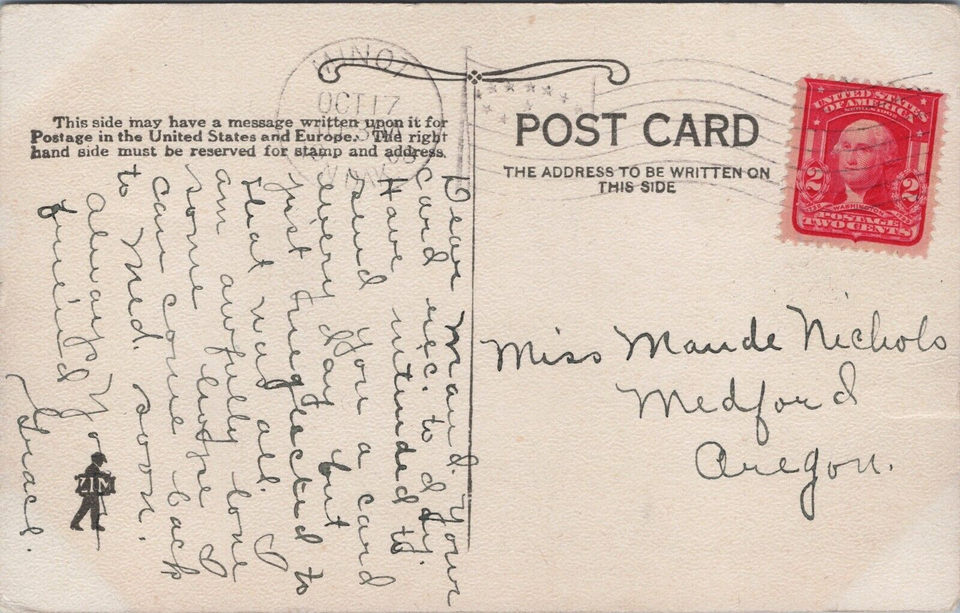 MINOT
OCT 17
This side may have a message written upon it for
Postage in the United States and Europe. The right
hand side must be reserved for stamp and address.
POST CARD
THE ADDRESS TO BE WRITTEN ON
THIS SIDE
UNITED STATES
OF AMERICA
2 2
WASHINGTON
POSTAGE
TWO CENTS
Dear Maud. Your
card rec. to day.
Have intended to
send you a card
every day but
just neglected to
that was all. I
am awfully lone
some hope I
can come back
to Med. soon.
Always Your
friend
Grace.
ZIM
Miss Maude Nichols
Medford
Oregon.